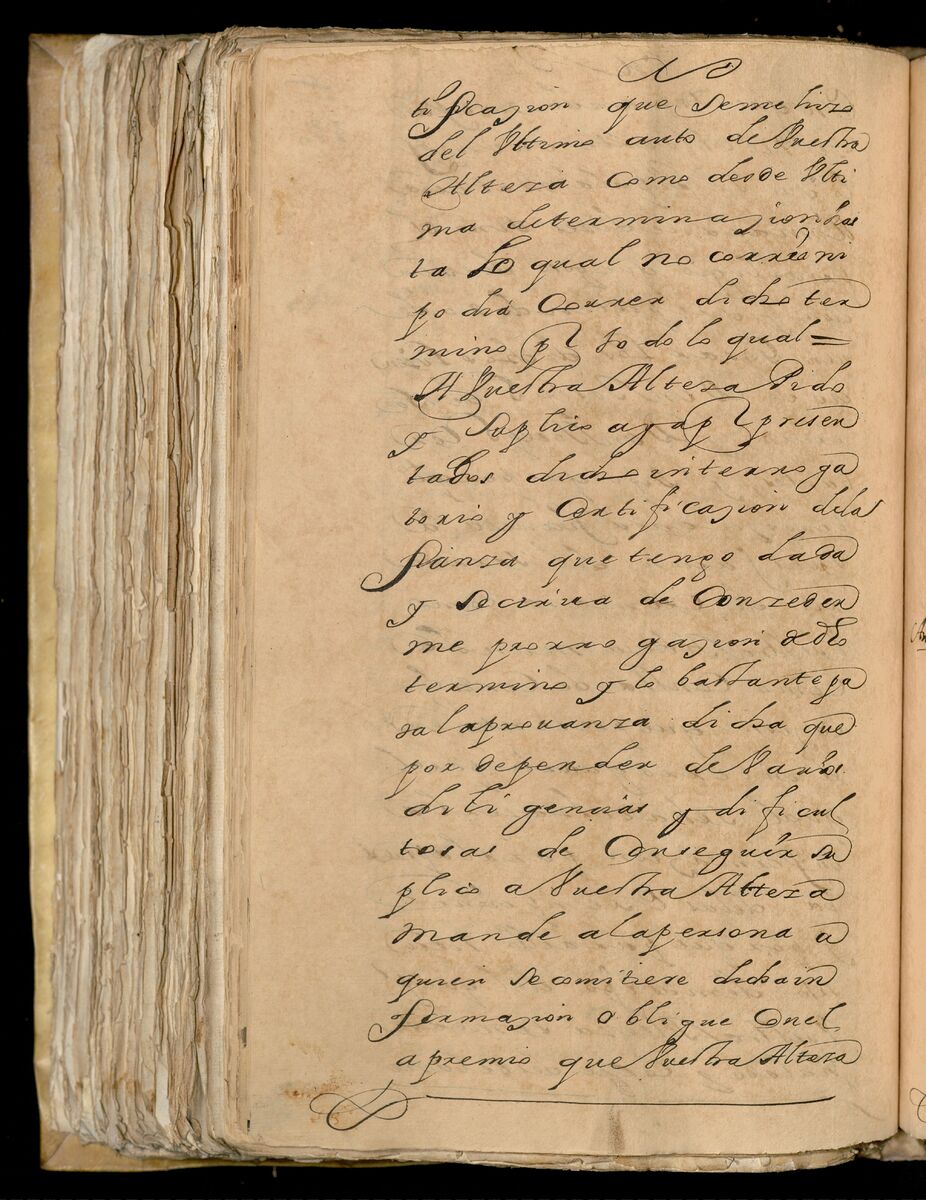 tificasion que semehizo
del Vltimo auto de Vuestra
Alteza como desde Vlti
ma determinasion has
ta lo qual no corrio ni
podia Correr dicho ter
mino p.r todo lo qual =
A Vuestra Alteza Pido
y Suplico aya p.r presen
tados dicho interroga
torio y Certificasion dela
fianza que tengo dada
y se sirua de Conzeder
me prorrogasion de dho
termino y lo bastante pa
ra laprouanza dicha que
por depender de Varias
diligencias y dificul
tosas de Conseguir su
plico a Vuestra Alteza
mande alapersona a
quien se cometiere dichain
formasion obligue Conel
apremio que Vuestra Alteza